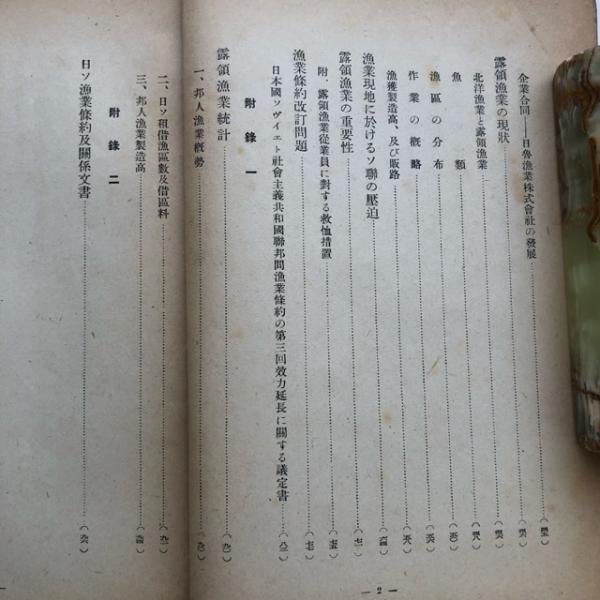 企業合同――日魯漁業株式會社の發展
露領漁業の現狀
北洋漁業と露領漁業
魚類
漁區の分布
作業の槪略
漁獲製造高、及び販路
漁業現地に於けるソ聯の壓迫
露領漁業の重要性
附・露領漁業從業員に對する救恤措置
漁業條約改訂問題
日本國ソヴイエト社會主義共和國聯邦間漁業條約の第三回效力延長に關する議定書
附錄一
露領漁業統計
一、邦人漁業槪勢
二、日ソ租借漁區數及借區料
三、邦人漁業製造高
附錄二
日ソ漁業條約及關係文書
— 2 —